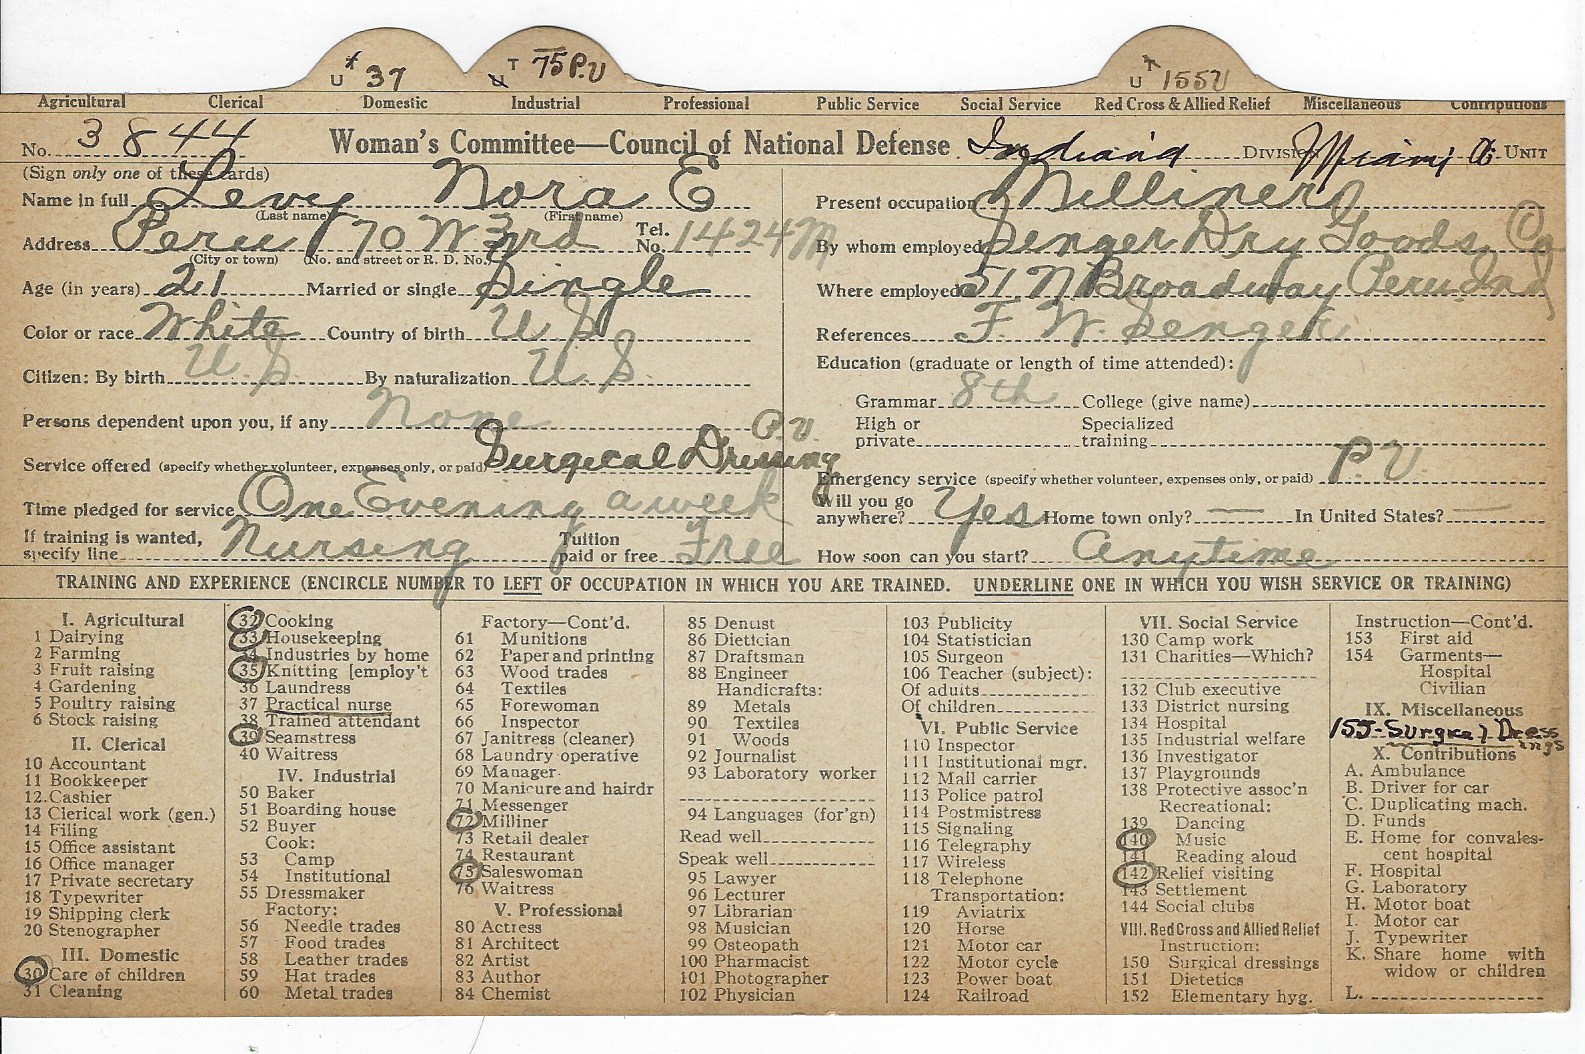 U 37
T 75 P.V
U T 155V
Agricultural Clerical Domestic Industrial Professional Public Service Social Service Red Cross & Allied Relief Miscellaneous Contributions
No. 3844 Woman's Committee—Council of National Defense Indiana DIVISION Miami Co. UNIT
(Sign only one of these cards)
Name in full Levy Nora E
(Last name) (First name)
Address Peru 170 W 3rd Tel. No. 1424M
(City or town) (No. and street or R. D. No.)
Age (in years) 21 Married or single Single
Color or race White Country of birth U S.
Citizen: By birth U. S. By naturalization U. S.
Persons dependent upon you, if any None
P.V.
Service offered (specify whether volunteer, expenses only, or paid) Surgical Dressing
Time pledged for service One Evening a week
If training is wanted, specify line Nursing Tuition paid or free Free
Present occupation Millinery
By whom employed Senger Dry Goods Co
Where employed 51 N Broadway Peru Ind
References F. W. Senger
Education (graduate or length of time attended):
Grammar 8th College (give name)
High or private Specialized training
Emergency service (specify whether volunteer, expenses only, or paid) P.V.
Will you go anywhere? Yes Home town only? — In United States? —
How soon can you start? Anytime
TRAINING AND EXPERIENCE (ENCIRCLE NUMBER TO LEFT OF OCCUPATION IN WHICH YOU ARE TRAINED. UNDERLINE ONE IN WHICH YOU WISH SERVICE OR TRAINING)
I. Agricultural
1 Dairying
2 Farming
3 Fruit raising
4 Gardening
5 Poultry raising
6 Stock raising
II. Clerical
10 Accountant
11 Bookkeeper
12 Cashier
13 Clerical work (gen.)
14 Filing
15 Office assistant
16 Office manager
17 Private secretary
18 Typewriter
19 Shipping clerk
20 Stenographer
III. Domestic
30 Care of children
31 Cleaning
32 Cooking
33 Housekeeping
34 Industries by home
35 Knitting [employ't
36 Laundress
37 Practical nurse
38 Trained attendant
39 Seamstress
40 Waitress
IV. Industrial
50 Baker
51 Boarding house
52 Buyer
Cook:
53 Camp
54 Institutional
55 Dressmaker
Factory:
56 Needle trades
57 Food trades
58 Leather trades
59 Hat trades
60 Metal trades
Factory—Cont'd.
61 Munitions
62 Paper and printing
63 Wood trades
64 Textiles
65 Forewoman
66 Inspector
67 Janitress (cleaner)
68 Laundry operative
69 Manager
70 Manicure and hairdr
71 Messenger
72 Milliner
73 Retail dealer
74 Restaurant
75 Saleswoman
76 Waitress
V. Professional
80 Actress
81 Architect
82 Artist
83 Author
84 Chemist
85 Dentist
86 Dietician
87 Draftsman
88 Engineer
Handicrafts:
89 Metals
90 Textiles
91 Woods
92 Journalist
93 Laboratory worker
94 Languages (for'gn)
Read well
Speak well
95 Lawyer
96 Lecturer
97 Librarian
98 Musician
99 Osteopath
100 Pharmacist
101 Photographer
102 Physician
103 Publicity
104 Statistician
105 Surgeon
106 Teacher (subject):
Of adults
Of children
VI. Public Service
110 Inspector
111 Institutional mgr.
112 Mail carrier
113 Police patrol
114 Postmistress
115 Signaling
116 Telegraphy
117 Wireless
118 Telephone
Transportation:
119 Aviatrix
120 Horse
121 Motor car
122 Motor cycle
123 Power boat
124 Railroad
VII. Social Service
130 Camp work
131 Charities—Which?
132 Club executive
133 District nursing
134 Hospital
135 Industrial welfare
136 Investigator
137 Playgrounds
138 Protective assoc'n
Recreational:
139 Dancing
140 Music
141 Reading aloud
142 Relief visiting
143 Settlement
144 Social clubs
VIII. Red Cross and Allied Relief
Instruction:
150 Surgical dressings
151 Dietetics
152 Elementary hyg.
Instruction—Cont'd.
153 First aid
154 Garments—
Hospital
Civilian
IX. Miscellaneous
155-Surgical Dressings
X. Contributions
A. Ambulance
B. Driver for car
C. Duplicating mach.
D. Funds
E. Home for convales-
cent hospital
F. Hospital
G. Laboratory
H. Motor boat
I. Motor car
J. Typewriter
K. Share home with
widow or children
L.